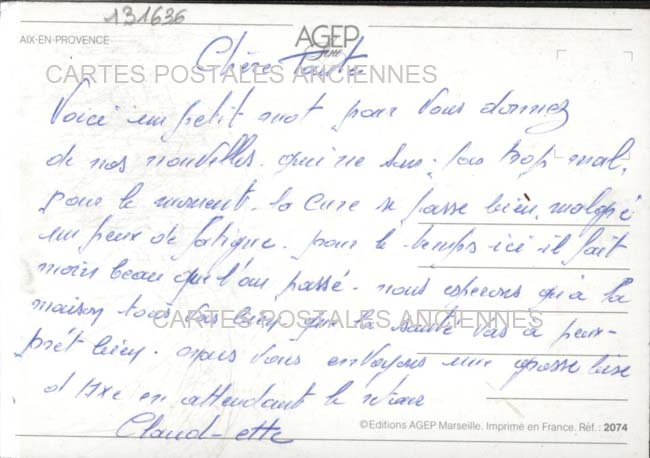 131636
AIX-EN-PROVENCE
AGEP
Chère
CARTES POSTALES ANCIENNES
Voici un petit mot pour vous donnez
de nos nouvelles. qui ne sons pas trop mal,
pour le moment. la cure se passe bien, malgré
un peux de fatigue. pour le temps ici il fait
moin beau que l'an passé. nous esperons qu'a la
maison tous vas bien que la santé vas a peux-
CARTES POSTALES ANCIENNES
prêt bien. nous vous envoyons une grosse bise
d'Aix en attendant le retour
Claud-ette
©Editions AGEP Marseille. Imprimé en France. Réf.: 2074